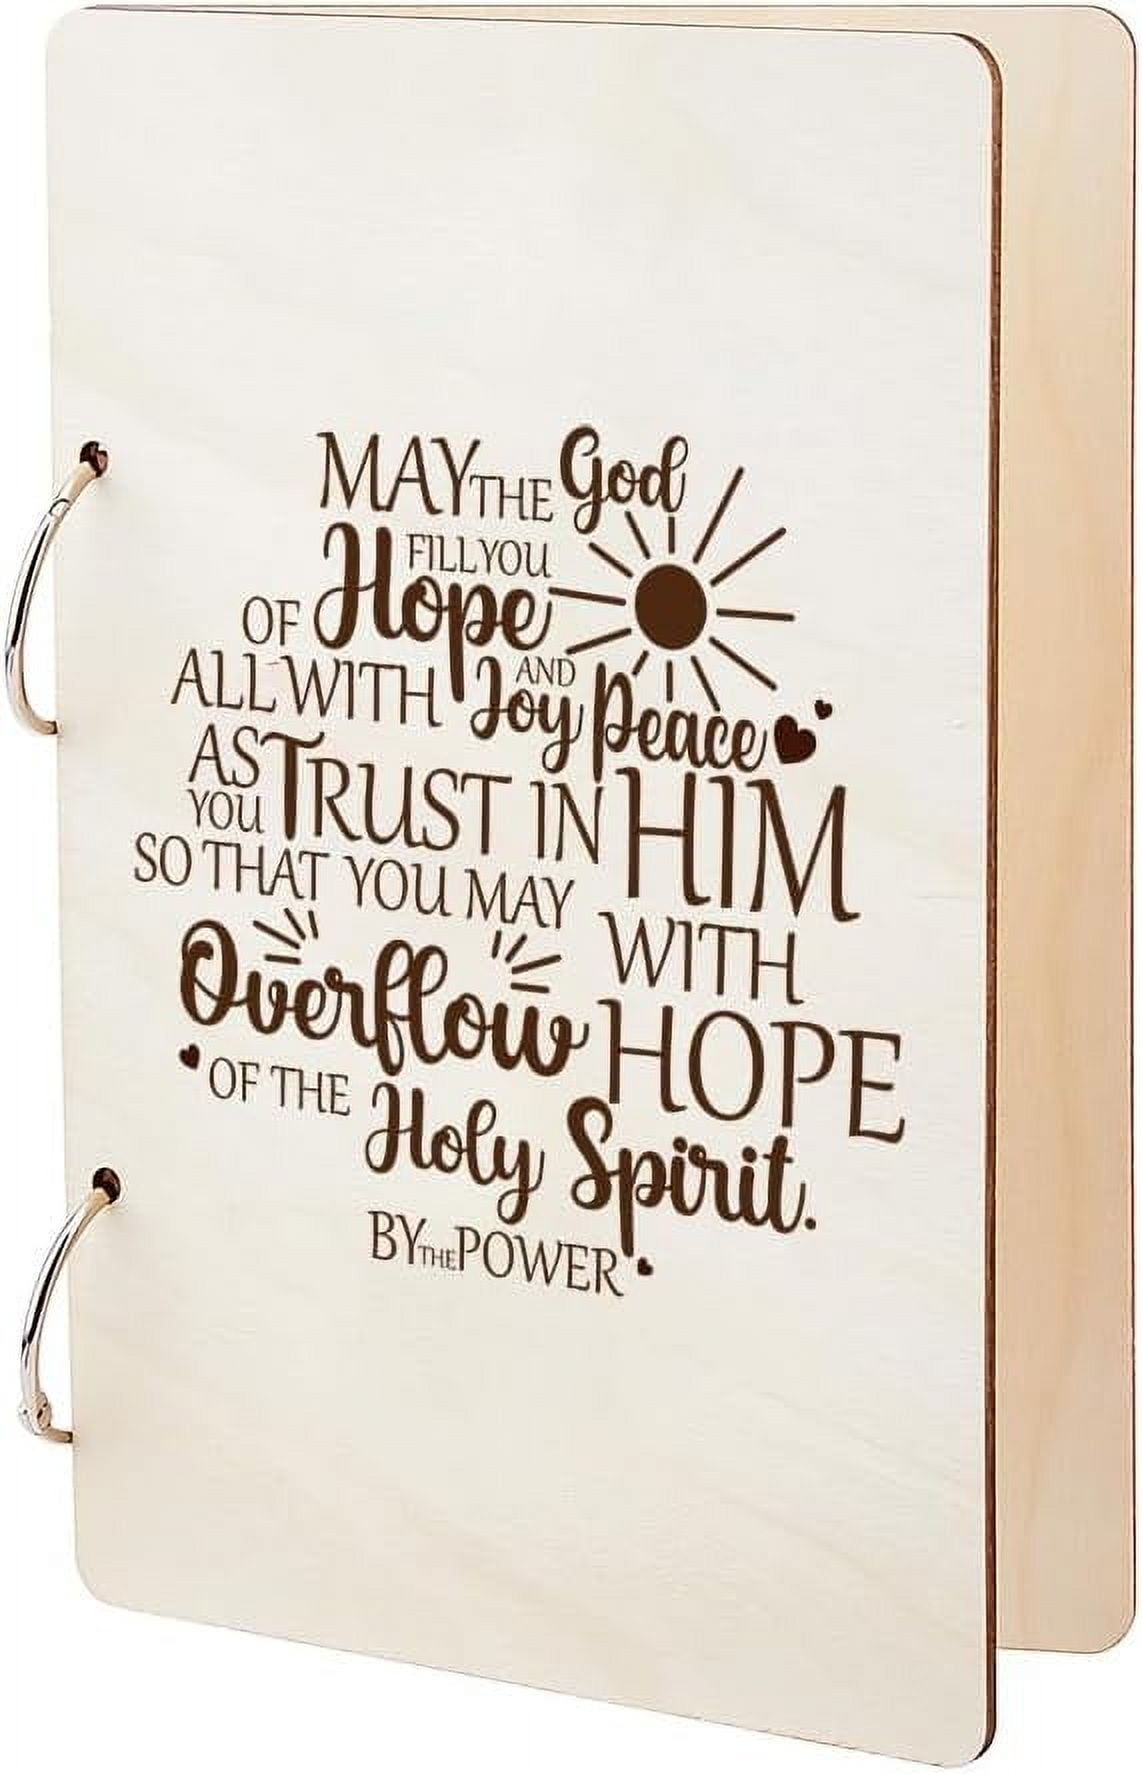 MAY THE God
FILL YOU
OF Hope
ALL WITH Joy AND Peace
AS
YOU TRUST IN HIM
SO THAT YOU MAY
Overflow WITH
HOPE
OF THE Holy Spirit.
BY THE POWER